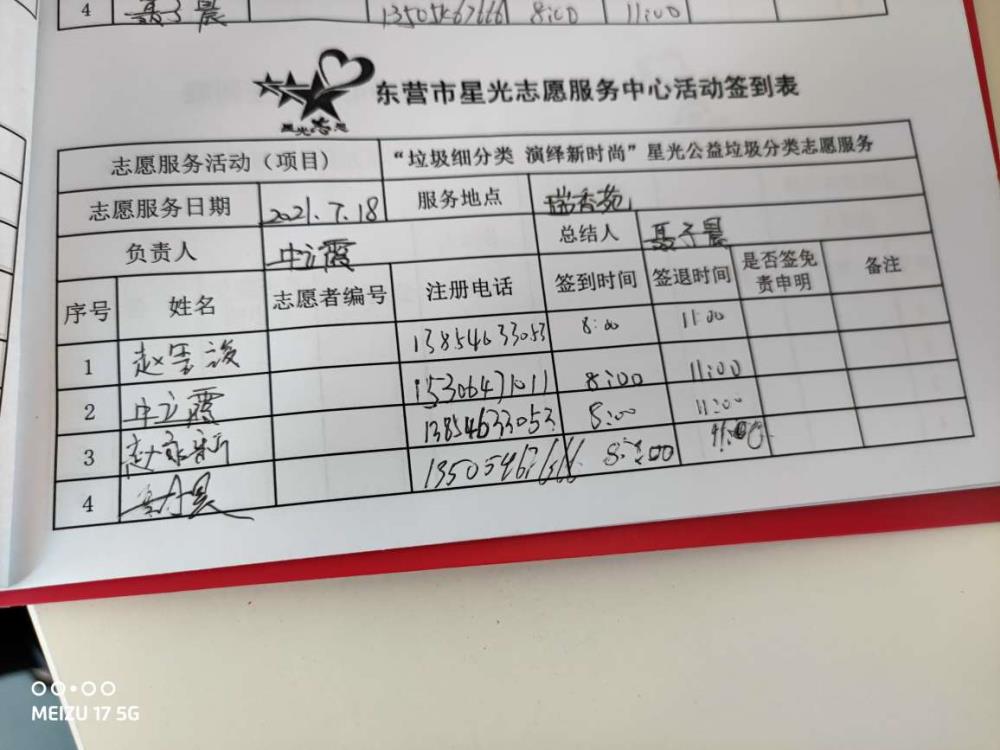 4 聂子晨 13505467666 8:00 11:00
星光志愿
东营市星光志愿服务中心活动签到表
志愿服务活动（项目） “垃圾细分类 演绎新时尚”星光公益垃圾分类志愿服务
志愿服务日期 2021.7.18 服务地点 瑞香苑
负责人 申立霞 总结人 聂子晨
序号 姓名 志愿者编号 注册电话 签到时间 签退时间 是否签免责申明 备注
1 13854633053 8:00 11:00
2 申立霞 15306471011 8:00 11:00
3 赵家新 13854633053 8:00 11:00
4
MEIZU 17 5G